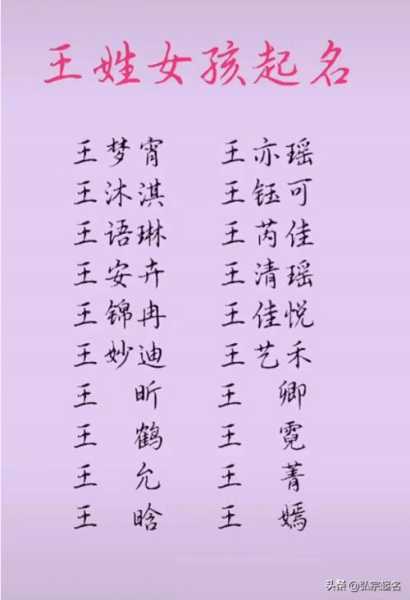 王姓女孩起名
王梦宵 王亦瑶
王沐淇 王钰可
王语琳 王芮佳
王安卉 王清瑶
王锦冉 王佳悦
王妙迪 王艺禾
王 昕 王 卿
王 鹤 王 霓
王 允 王 菁
王 晗 王 嫣
头条 @弘宗起名